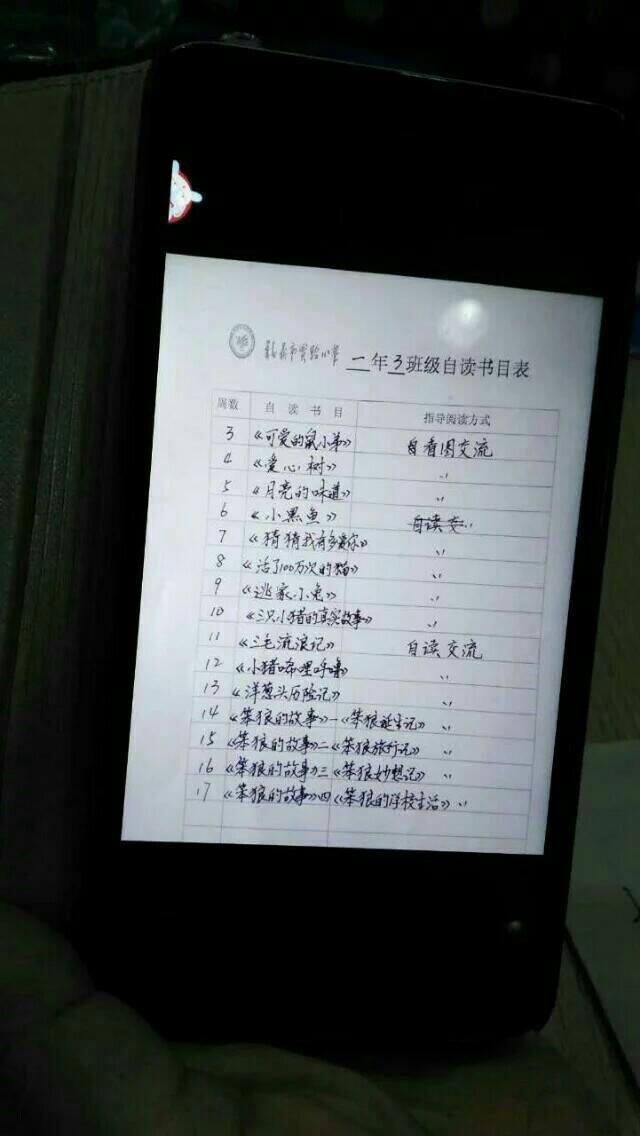 市实验小学 一年3班级自读书目表
周数 自读书目 指导阅读方式
3 《可爱的鼠小弟》 自看图交流
4 《爱心树》 〃
5 《月亮的味道》 〃
6 《小黑鱼》 〃
7 《猜猜我有多爱你》 〃
8 《活了100万次的猫》 〃
9 《逃家小兔》 〃
10 《三只小猪的真实故事》 〃
11 《三毛流浪记》 自读交流
12 《小猪唏哩呼噜》 〃
13 《洋葱头历险记》 〃
14 《笨狼的故事》一《笨狼诞生记》 〃
15 《笨狼的故事》二《笨狼旅行记》 〃
16 《笨狼的故事》三《笨狼妙想记》 〃
17 《笨狼的故事》四《笨狼的学校生活》 〃